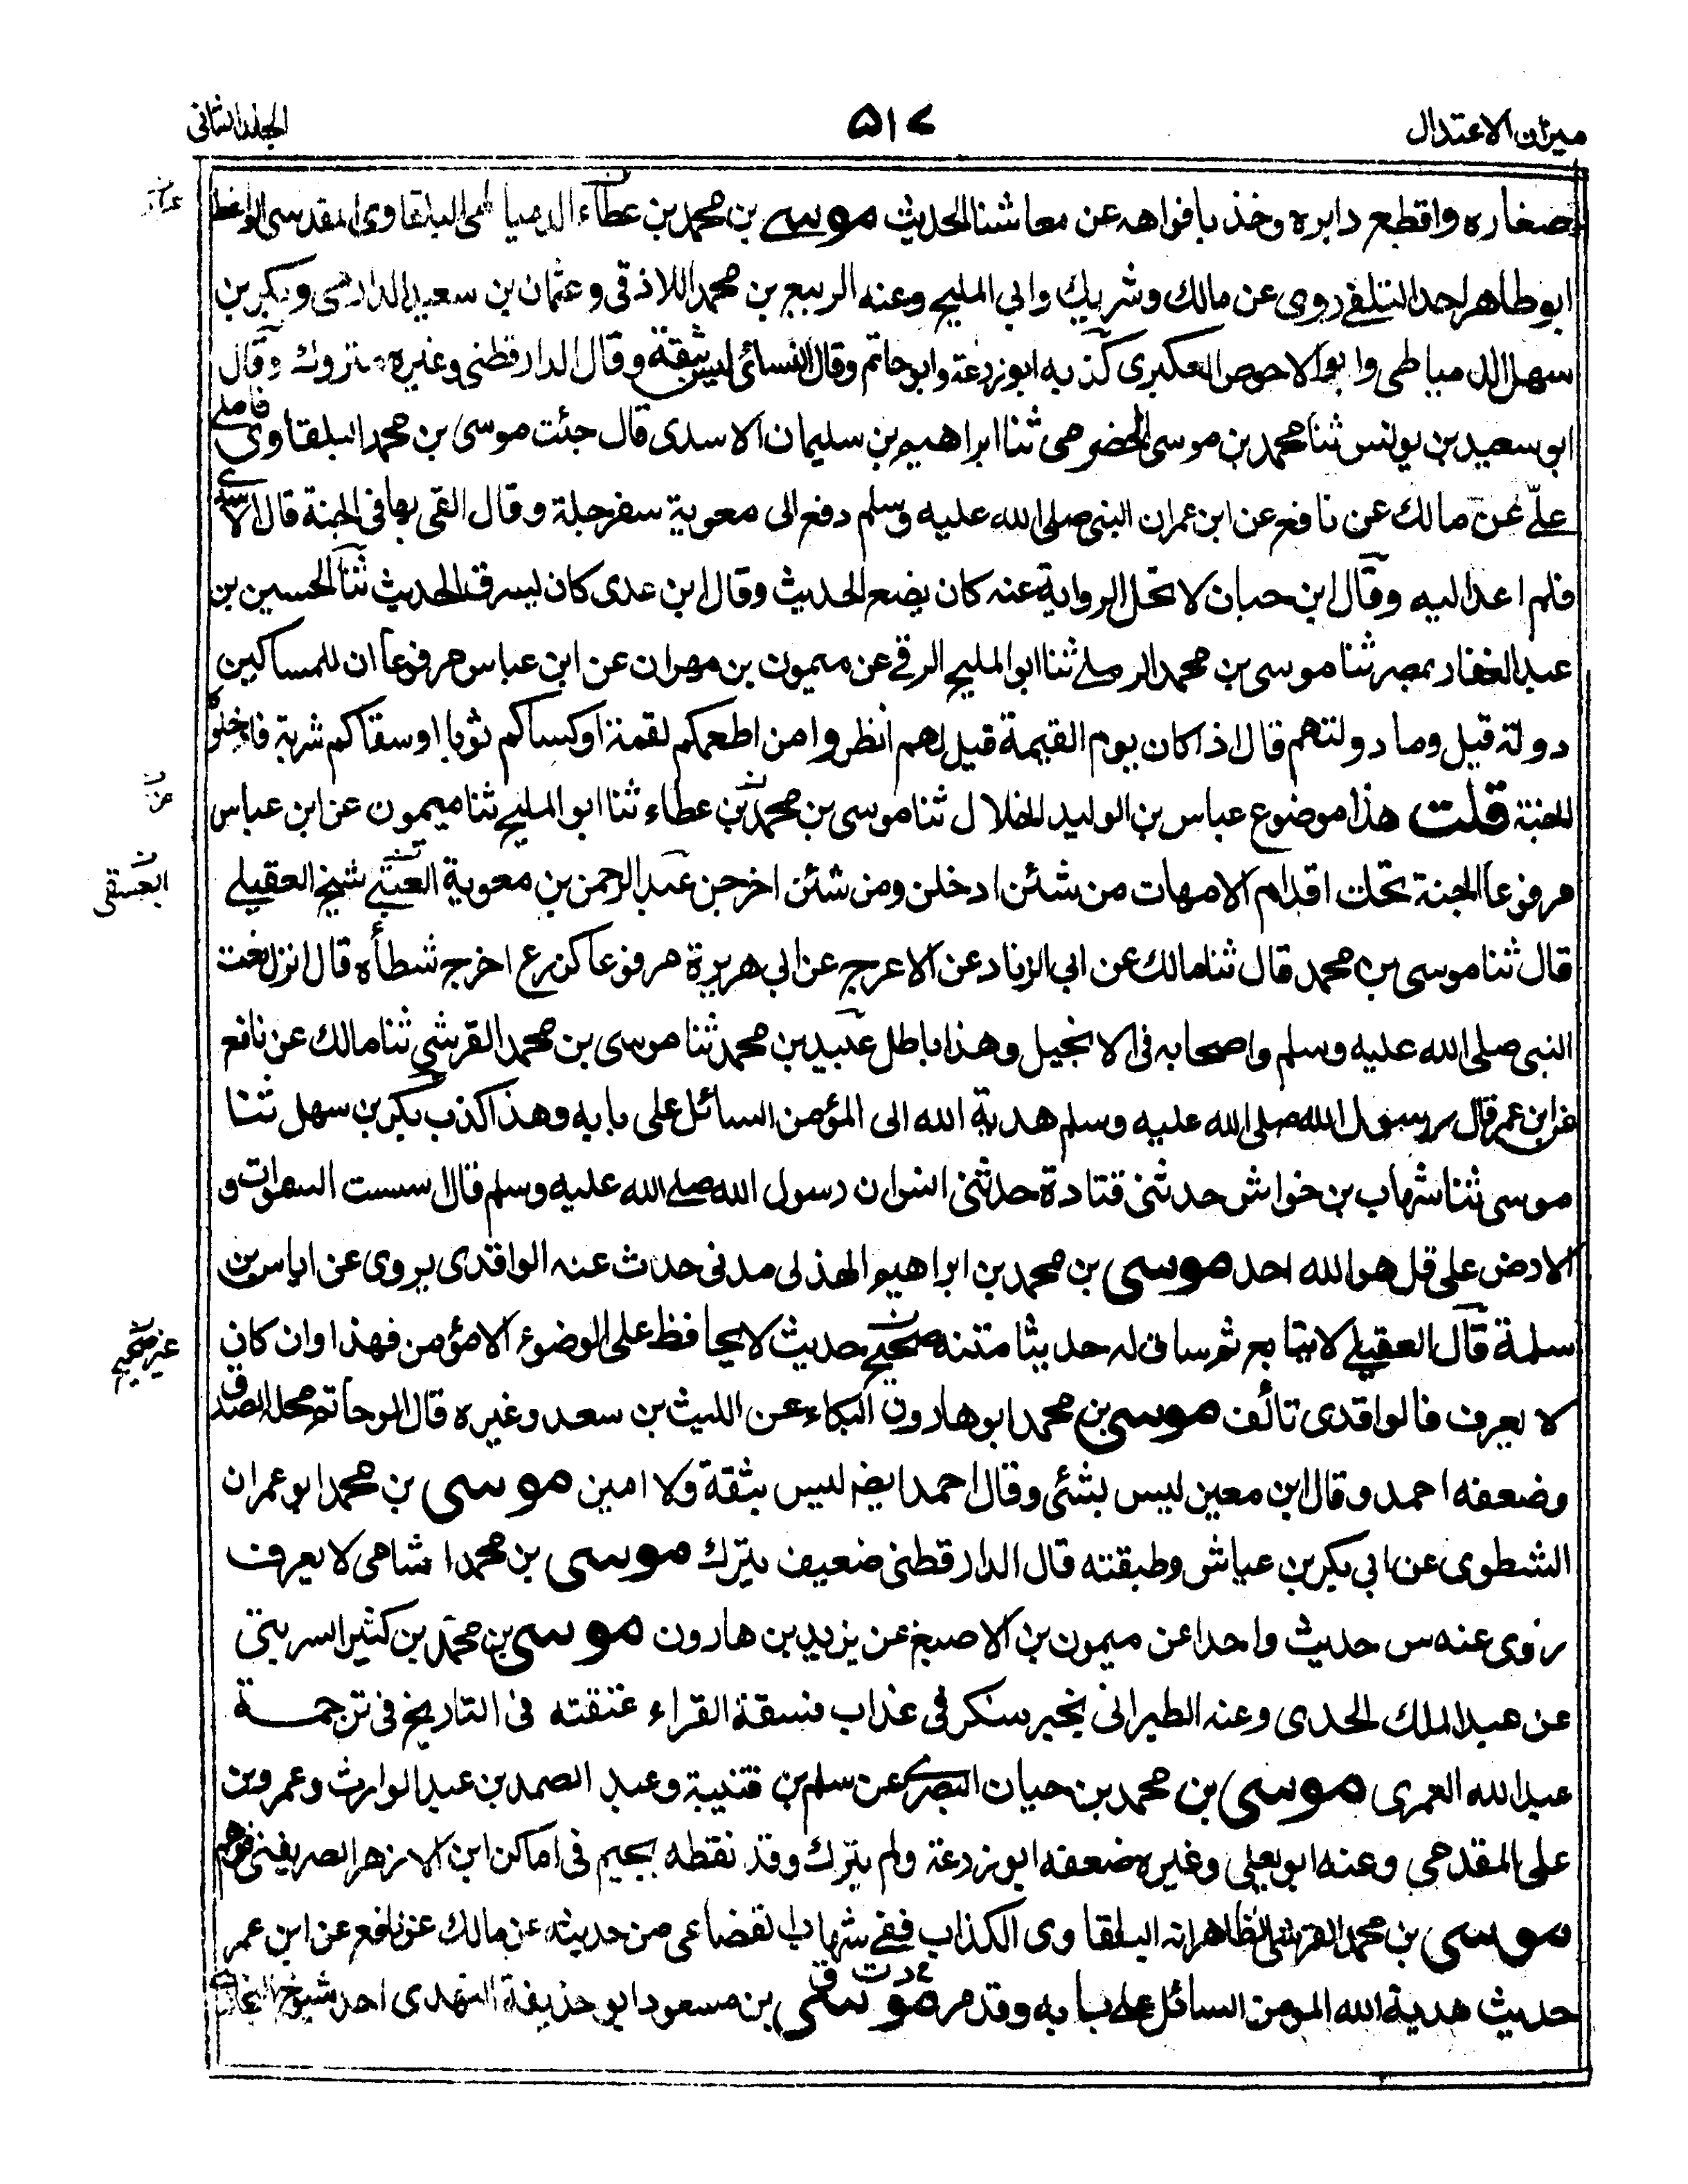 ميزان الاعتدال
٥١٧
الجلد الثاني
صغاره واقطع دابره وخذ بافواهه عن معاشنا الحديث موسى بن محمد بن عطاء الدمياطى البلقاوى المقدسى الواعظ
ابو طاهر احد التلفى روى عن مالك وشريك وابي المليح وعنه الربيع بن محمد اللاذقى وعثمان بن سعيد الدارمى وبكر بن
سهل الدمياطى وابو الاحوص العكبرى كذبه ابو زرعة وابو حاتم وقال النسائى ليس بثقة وقال الدارقطنى وغيره متروك وقال
ابو سعيد بن يونس ثنا محمد بن موسى الحضرمى ثنا ابراهيم بن سليمان الاسدى قال جئت موسى بن محمد البلقاوى فاملى
علىّ عن مالك عن نافع عن ابن عمران النبى صلى الله عليه وسلم دفع الى معوية سفرجلة وقال القى بها فى الجنة قال الاسدى
فلم اعد اليه وقال ابن حبان لا تحل الرواية عنه كان يضع الحديث وقال ابن عدى كان يسرق الحديث ثنا الحسين بن
عبد الغفار بمصر ثنا موسى بن محمد الرملى ثنا ابو المليح الرقى عن ميمون بن مهران عن ابن عباس مرفوعا ان للمساكين
دولة قيل وما دولتهم قال اذا كان يوم القيمة قيل لهم انظروا من اطعمكم لقمة او كساكم ثوبا او سقاكم شربة فادخلوه
الجنة قلت هذا موضوع عباس بن الوليد الخلال ثنا موسى بن محمد بن عطاء ثنا ابو المليح ثنا ميمون عن ابن عباس
مرفوعا الجنة تحت اقدام الامهات من شئن ادخلن ومن شئن اخرجن عبد الرحمن بن معوية العتبى شيخ العقيلى
قال ثنا موسى بن محمد قال ثنا مالك عن ابى الزناد عن الاعرج عن ابى هريرة مرفوعا كزرع اخرج شطأه قال انزل نعت
النبى صلى الله عليه وسلم واصحابه فى الانجيل وهذا باطل عبيد بن محمد ثنا موسى بن محمد القرشى ثنا مالك عن نافع
عن ابن عمر قال رسول الله صلى الله عليه وسلم هدية الله الى المؤمن السائل على بابه وهذا كذب بكر بن سهل ثنا
موسى ثنا شهاب بن خواش حدثنى قتادة حدثنى انس ان رسول الله صلى الله عليه وسلم قال اسست السموات و
الارض على قل هو الله احد موسى بن محمد بن ابراهيم الهذلى مدنى حدث عنه الواقدى يروى عن اياس بن
سلمة قال العقيلى لا يتابع ثم ساق له حديثا متنه صحيح حديث لا يحافظ على الوضوء الا مؤمن فهذا وان كان
غير صحيح
لا يعرف فالواقدى تالف موسى بن محمد ابو هارون البكاء عن الليث بن سعد وغيره قال ابو حاتم محله الصدق
وضعفه احمد وقال ابن معين ليس بشئى وقال احمد ايضا ليس بثقة ولا امين موسى بن محمد ابو عمران
الشطوى عن ابي بكر بن عياش وطبقته قال الدارقطنى ضعيف يترك موسى بن محمد الشامى لا يعرف
روى عنه س حديث واحدا عن ميمون بن الاصبغ عن يزيد بن هارون موسى بن محمد بن كثير السرينى
عن عبد الملك الجدى وعنه الطبرانى بخبر منكر فى عذاب فسقة القراء علقته فى التاريخ فى ترجمة
عبد الله العمرى موسى بن محمد بن حيان البصرى عن سلم بن قتيبة وعبد الصمد بن عبد الوارث وعمر وبن
على المقدمى وعنه ابو يعلى وغيره ضعفه ابو زرعة ولم يترك وقد نقطه بجيم فى اماكن ابن الازهر الصريفينى فوهم
موسى بن محمد القرشى الظاهر انه البلقاوى الكذاب ففى شهاب القضاعى من حديثه عن مالك عن نافع عن ابن عمر
حديث هدية الله المومن السائل على بابه وقد مر موسى بن مسعود ابو حذيفة النهدى احد شيوخ البخارى